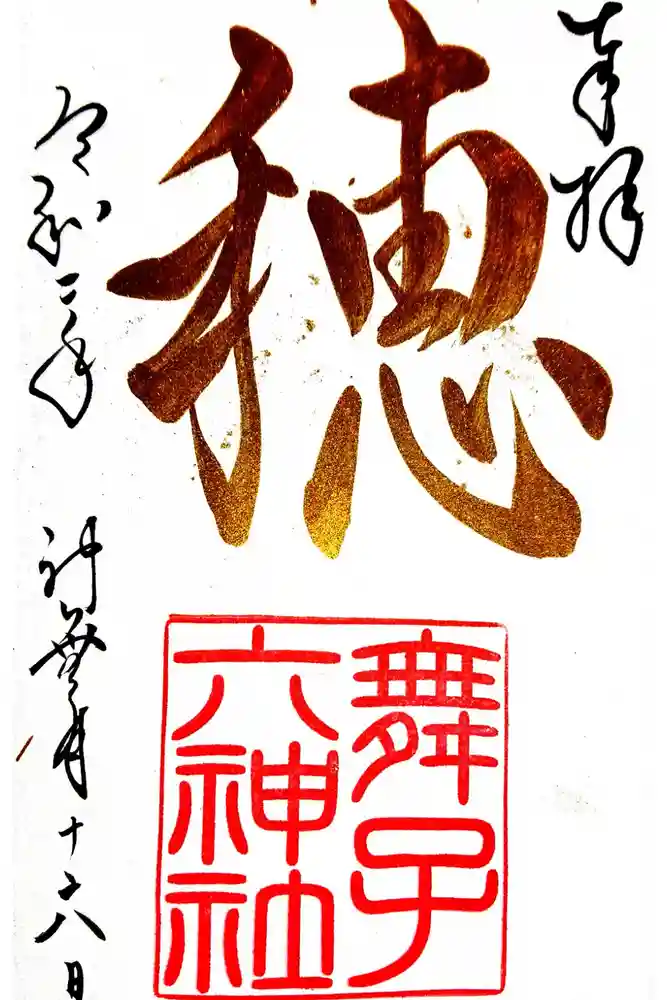 奉拝
穂
舞子
六神社
令和二年 神無月 十六日